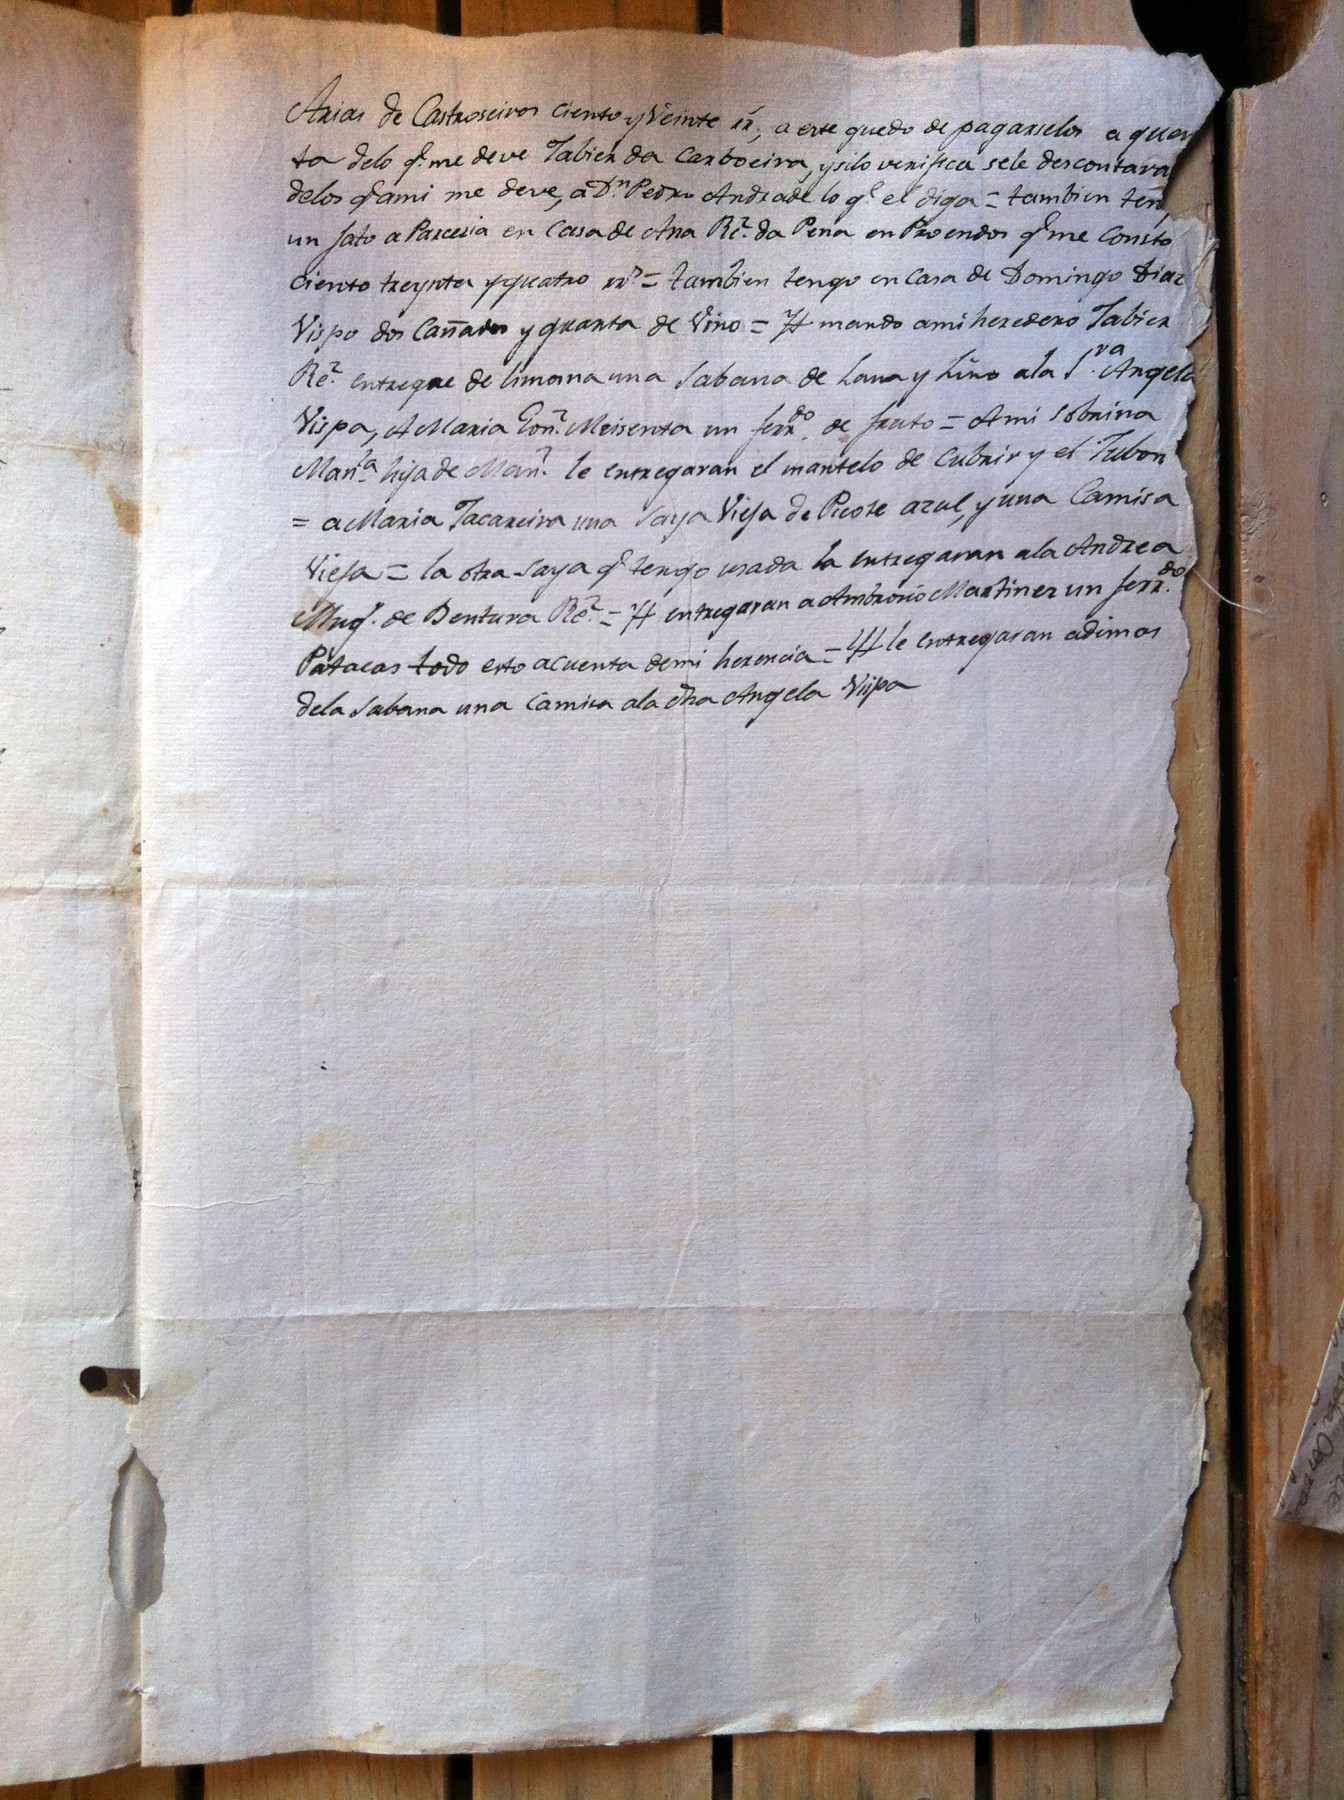 Arias de Castroseiros ciento y Veinte rr.ˢ, a este quedo de pagarselos a quen
ta delo q.ᵉ me deve Jabier da Carboeira, y silo verifica sele descontara
delos q.ᵉ ami me deve, a D.ⁿ Pedro Andrade lo q.ᵉ el diga = tambien ten
un jato a Parceria en Casa de Ana Rê.ᶻ da Pena en Proendos q.ᵉ me Consto
Ciento treynta y quatro rr.ˢ = tambien tengo en Casa de Domingo Diaz
Vispo dos Cañados y quarta de Vino = Yt mando ami heredero Jabier
Rê.ᶻ entregue de limosna una Sabana de Lana y Lino ala S.ʳᵃ Angela
Vispa, A Maria Gon.ᶻ Meisenta un ferr.ᵈᵒ de fruto = Ami Sobrina
Man.ˡᵃ hija de Man.ˡ le entregaran el mantelo de Cubrir y el Jubon
= a Maria Tacareira una Saya Vieja de Picote azul, y una Camisa
Vieja = la otra Saya q.ᵉ tengo usada la entregaran ala Andrea
Mug.ʳ de Bentura Rê.ᶻ = Yt entregaran a Ambrosio Martinez un ferr.ᵈᵒ
Patacas todo esto acuenta demi herencia = Yt le entregaran adimas
dela Sabana una Camisa ala dha Angela Vispa